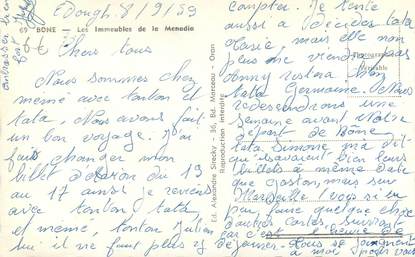 Edough 8/9/59
69 BONE - Les Immeubles de la Menadia
Chers tous
Nous sommes chez
mémé avec tonton et
tata, nous avons fait
un bon voyage. J'ai
fait changer mon
billet d'avion du 19
au 17 ainsi je reviens
avec tonton, tata,
et mémé, tonton Julien
lui il ne faut plus y
Ed. Alexandre - 36, Bd - Oran
Reproduction interdite
Photographie
Véritable
compter. Je tente
aussi à décider tata
mais elle non
plus ne viendra pas
Anny restera chez
tata Germaine. Nous
redescendrons une
semaine avant notre
départ de Bône
tata Simone m'a dit
qu'ils avaient bien leurs
billets à même date
que Gaston, mais sur
Marseille voyez si on
peu faire quelque chose
d'autres cartes suivront
car c'est l'heure de
déjeuner. Tous se joignent
à moi pour vous
embrasser bien